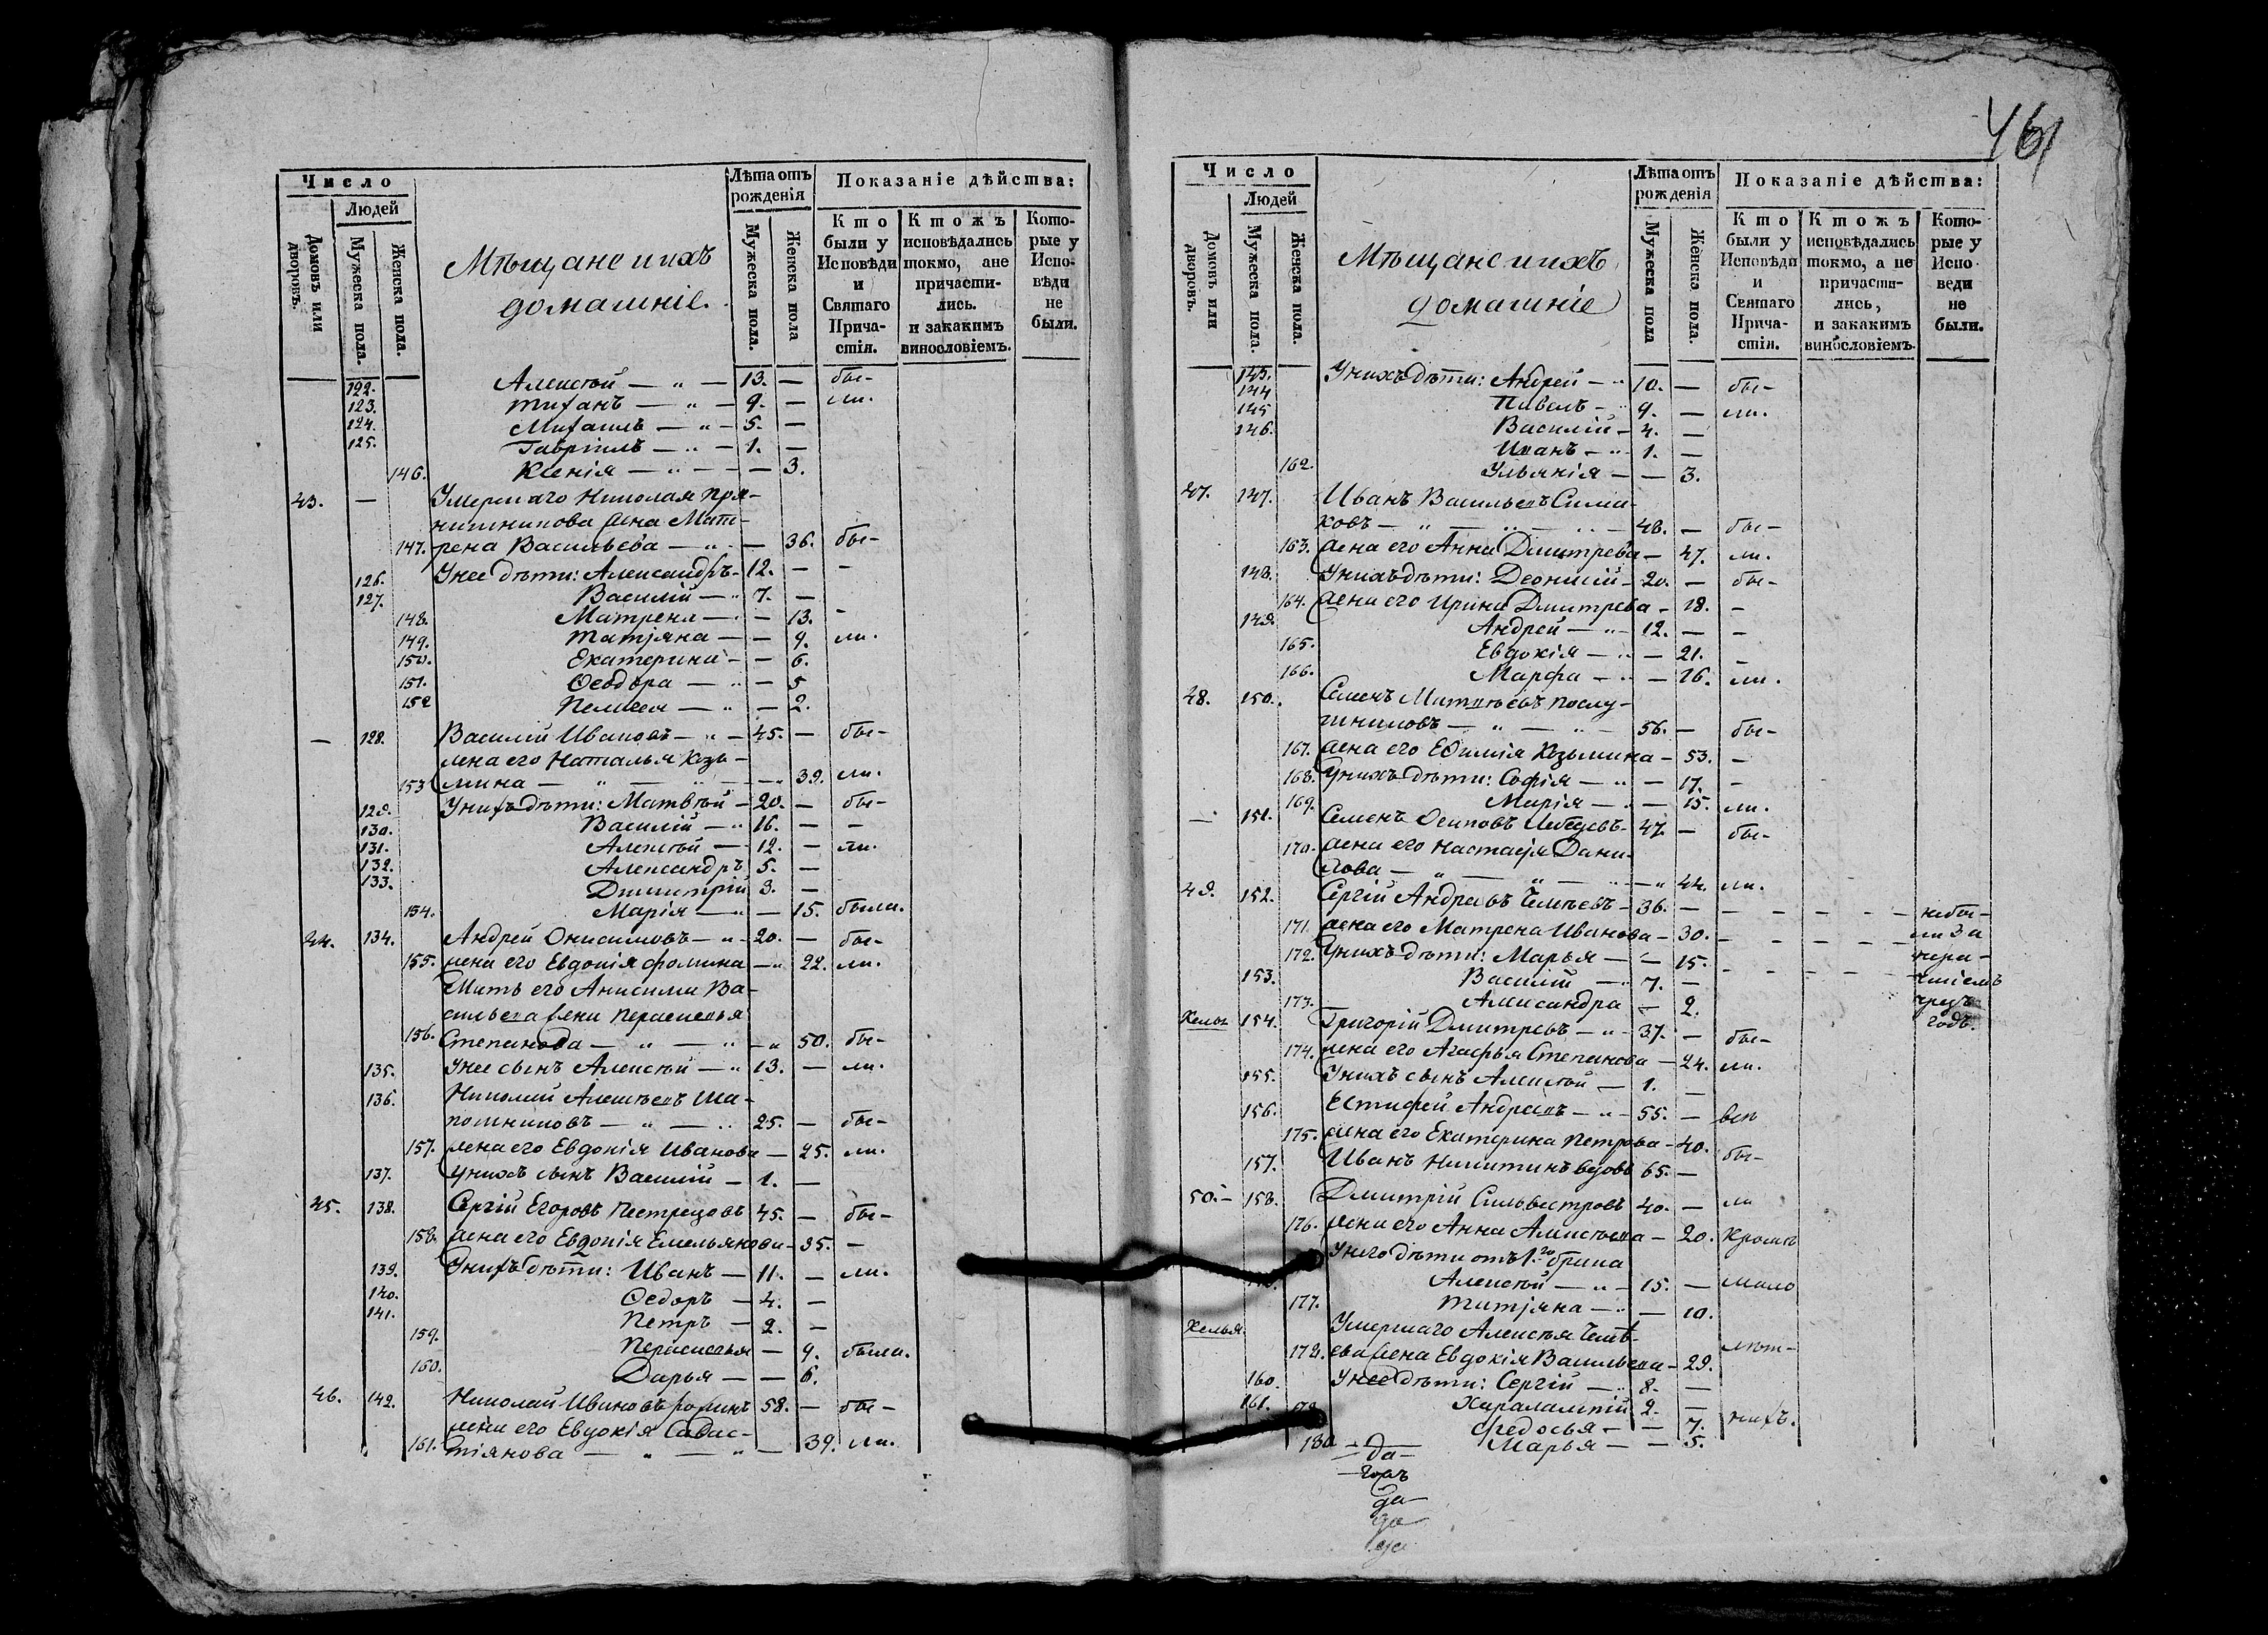 461
Число
Людей
Домовъ или дворовъ.
Мужеска пола.
Женска пола.
Мѣщане и ихъ
домашніе.
Лѣта отъ
рожденія
Мужеска пола.
Женска пола
Показаніе дѣйства:
Кто
были у
Исповѣди
и
Святаго
Прича-
стія.
Ктожъ
исповѣдались
токмо, а не
причасти-
лись.
и закакимъ
винословіемъ.
Кото-
рые у
Испо-
вѣди
не
были.
122. Алексѣй — „ — 13. — бы-
123. Тиханъ — „ — 9. — ли.
124. Михаилъ — „ — 5. —
125. Гавріилъ — „ — 1. —
146. Ксенія — „ — — 3.
43. — Умершаго Николая Пря-
нишникова жена Мат-
147. рена Васильева — „ — 36. бы-
126. У нее дѣти: Александръ - 12. — -
127. Василій — „ 7. —
148. Матрена — - — 13. -
149. Татіяна — - — 9. ли.
150. Екатерина - — 6.
151. Ѳеодора — „ — 5
152 Пелагея — „ — 2.
— 128. Василій Ивановъ — „ — 45. — бы-
жена его Наталья Козь-
153 мина — „ — „ — „ 39. ли.
129. У нихъ дѣти: Матвѣй — 20. — бы-
130. Василій — „ 16. — —
131. Алексѣй — 12. — ли.
132. Александръ 5. —
133. Димитрій 3. —
154. Марія — „ — 15. была.
44. 134. Андрей Онисимовъ — „ — 20. — бы-
155. жена его Евдокія Фомина — „ 22. ли.
Мать его Анисима Ва-
сильева жена Парасковья
156. Степанова — „ — „ — „ 50. бы-
135. У нее сынъ Алексѣй — „ 13. — ли.
136. Николай Алексѣевъ Ша-
пошниковъ — „ — „ 25. — бы-
157. жена его Евдокія Иванова — 25. ли.
137. У нихъ сынъ Василій — 1. —
45. 138. Сергій Егоровъ Пестрецовъ 45. — бы-
158. жена его Евдокія Емельянова - 35. —
139. У нихъ дѣти: Иванъ — 11. — ли.
140. Ѳедоръ — 4. —
141. Петръ — 2. —
159. Парасковья — 9. была.
160. Дарья — — 6.
46. 142. Николай Ивановъ 58. — бы-
жена его Евдокія Савас-
161. тіянова — „ — „ — 39. ли.
Число
Людей
Домовъ или дворовъ.
Мужеска пола.
Женска пола.
Мѣщане и ихъ
домашніе
Лѣта отъ
рожденія
Мужеска пола
Женска пола.
Показаніе дѣйства:
Кто
были у
Исповѣди
и
Святаго
Прича-
стія.
Ктожъ
исповѣдались
токмо, а не
причасти-
лись,
и закакимъ
винословіемъ.
Кото-
рые у
Испо
веди
не
были.
143. У нихъ дѣти: Андрей — „ 10. — бы-
144 Павелъ — 9. — ли.
145 Василій — 4. —
146. Иванъ — „ 1. —
162. Ульянія — — 3.
47. 147. Иванъ Васильевъ Сима-
ковъ — „ — „ — „ — 48. — бы-
163. жена его Анна Дмитрева — 47. ли.
148. У нихъ дѣти: Деонисій — 20. — бы-
164. жена его Ирина Дмитрева — 18. -
149. Андрей — „ — 12. — -
165. Евдокія — „ — 21. -
166. Марфа — „ — 16. ли.
48. 150. Семенъ Матвѣевъ Послу-
шниковъ — „ — „ — 56. — бы-
167. жена его Евфимія Козьмина — 53. -
168. У нихъ дѣти: Софія — „ — 17. -
169. Марія — „ — 15. ли.
— 151. Семенъ Осиповъ Лебедевъ - 47. — бы-
170. жена его Настасія Дани-
лова — „ — „ — „ — „ 44. ли.
49. 152. Сергій Андреевъ - 36. — — — — небы-
171. жена его Матрена Иванова — 30. — — — — ли за
172. У нихъ дѣти: Марья — — 15. — — — — нера-
153. Василій — „ 7. — чніемъ
173. Александра — 2. чрезъ
годъ.
Келья 154. Григорій Дмитревъ — „ — 37. — бы-
174. жена его Агафья Степанова — 24. ли.
155. У нихъ сынъ Алексѣй — 1. —
156. Евстифей Андреевъ — „ — 55. — всѣ
175. жена его Екатерина Петрова — 40.
157. Иванъ Никитинъ вдовъ 65. — бы-
50. — 158. Дмитрій Сильвестровъ 40. — ли
176. жена его Анна Алексѣева — 20. кромѣ
У него дѣти отъ 1.го брака
Алексѣй — „ — 15. — мало
177. Татіяна — „ — 10.
Келья. Умершаго Алексѣя
178. жена Евдокія Васильева — 29. лѣт-
160. У нее дѣти: Сергій — „ 8. —
161. Харалампій 2. —
Федосья — — 7. нихъ.
180 Марья — — 5.
да
да
да